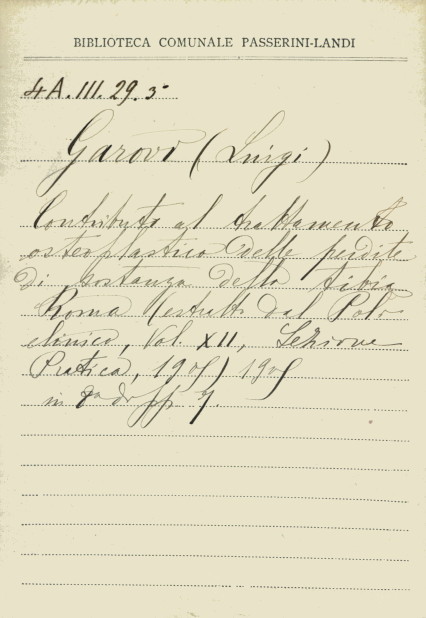 BIBLIOTECA COMUNALE PASSERINI-LANDI
4A.III.29.5
Garovi (Luigi)
Contributo al trattamento
osteoplastico delle perdite
di sostanza della tibia
Roma (estratto dal Poli-
clinico, Vol. XII, Sezione
Pratica, 1905) 1905
in 8º di pp 7.